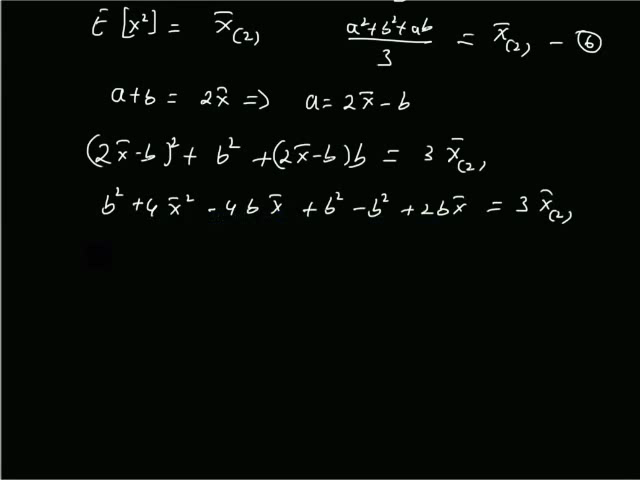 E [x²] = x̄₍₂₎   (a²+b²+ab)/3 = x̄₍₂₎ - ⑥
a+b = 2x̄ => a = 2x̄ - b
(2x̄-b)² + b² + (2x̄-b)b = 3 x̄₍₂₎
b² + 4x̄² - 4bx̄ + b² - b² + 2bx̄ = 3 x̄₍₂₎